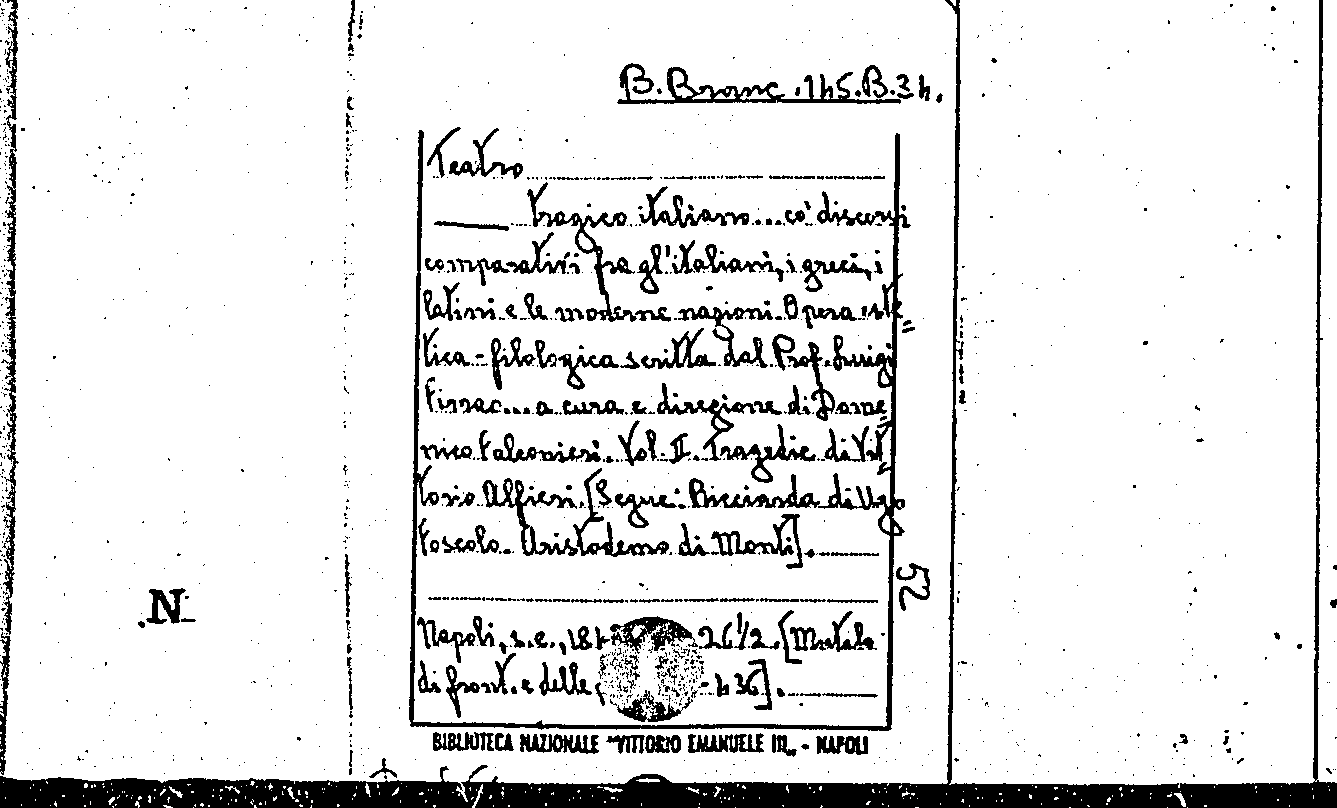 B. Branc. 145. B. 34.
Teatro
— tragico italiano... co' discorsi
comparativi fra gl'italiani, i greci, i
latini e le moderne nazioni. Opera este=
tica-filologica scritta dal Prof. Luigi
... a cura e direzione di Dome=
nico Falconieri. Vol. II. Tragedie di Vit=
torio Alfieri. [Segue: Ricciarda di Ugo
Foscolo. Aristodemo di Monti].
52
N
Napoli, s.e., 26½. [Mutilo
di front. e delle -436].
BIBLIOTECA NAZIONALE "VITTORIO EMANUELE III" - NAPOLI